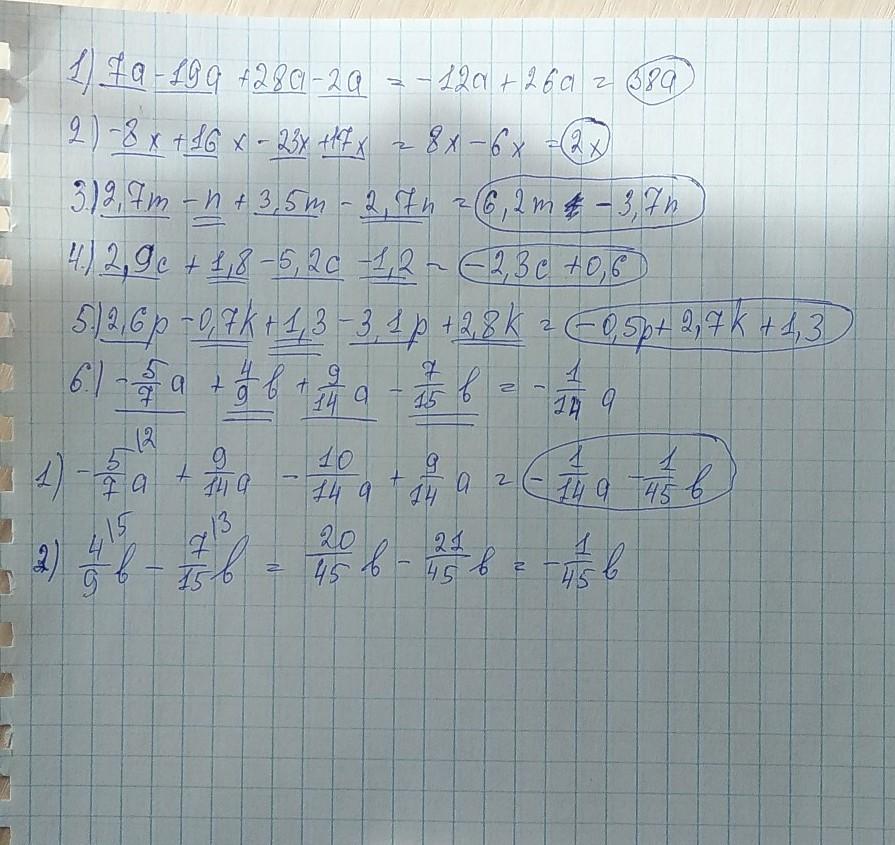 1) 7a - 19a + 28a - 2a = -12a + 26a = 38a
2) -8x + 16x - 23x + 17x = 8x - 6x = 2x
3.) 2,7m - n + 3,5m - 2,7n = 6,2m - 3,7n
4.) 2,9c + 1,8 - 5,2c - 1,2 = -2,3c + 0,6
5.) 2,6p - 0,7k + 1,3 - 3,1p + 2,8k = -0,5p + 2,7k + 1,3
6.) -5/7 a + 4/9 b + 9/14 a - 7/15 b = -1/14 a
1) -5/7\2 a + 9/14 a - 10/14 a + 9/14 a = -1/14 a - 1/45 b
2) 4/9\5 b - 7/15\3 b = 20/45 b - 21/45 b = -1/45 b